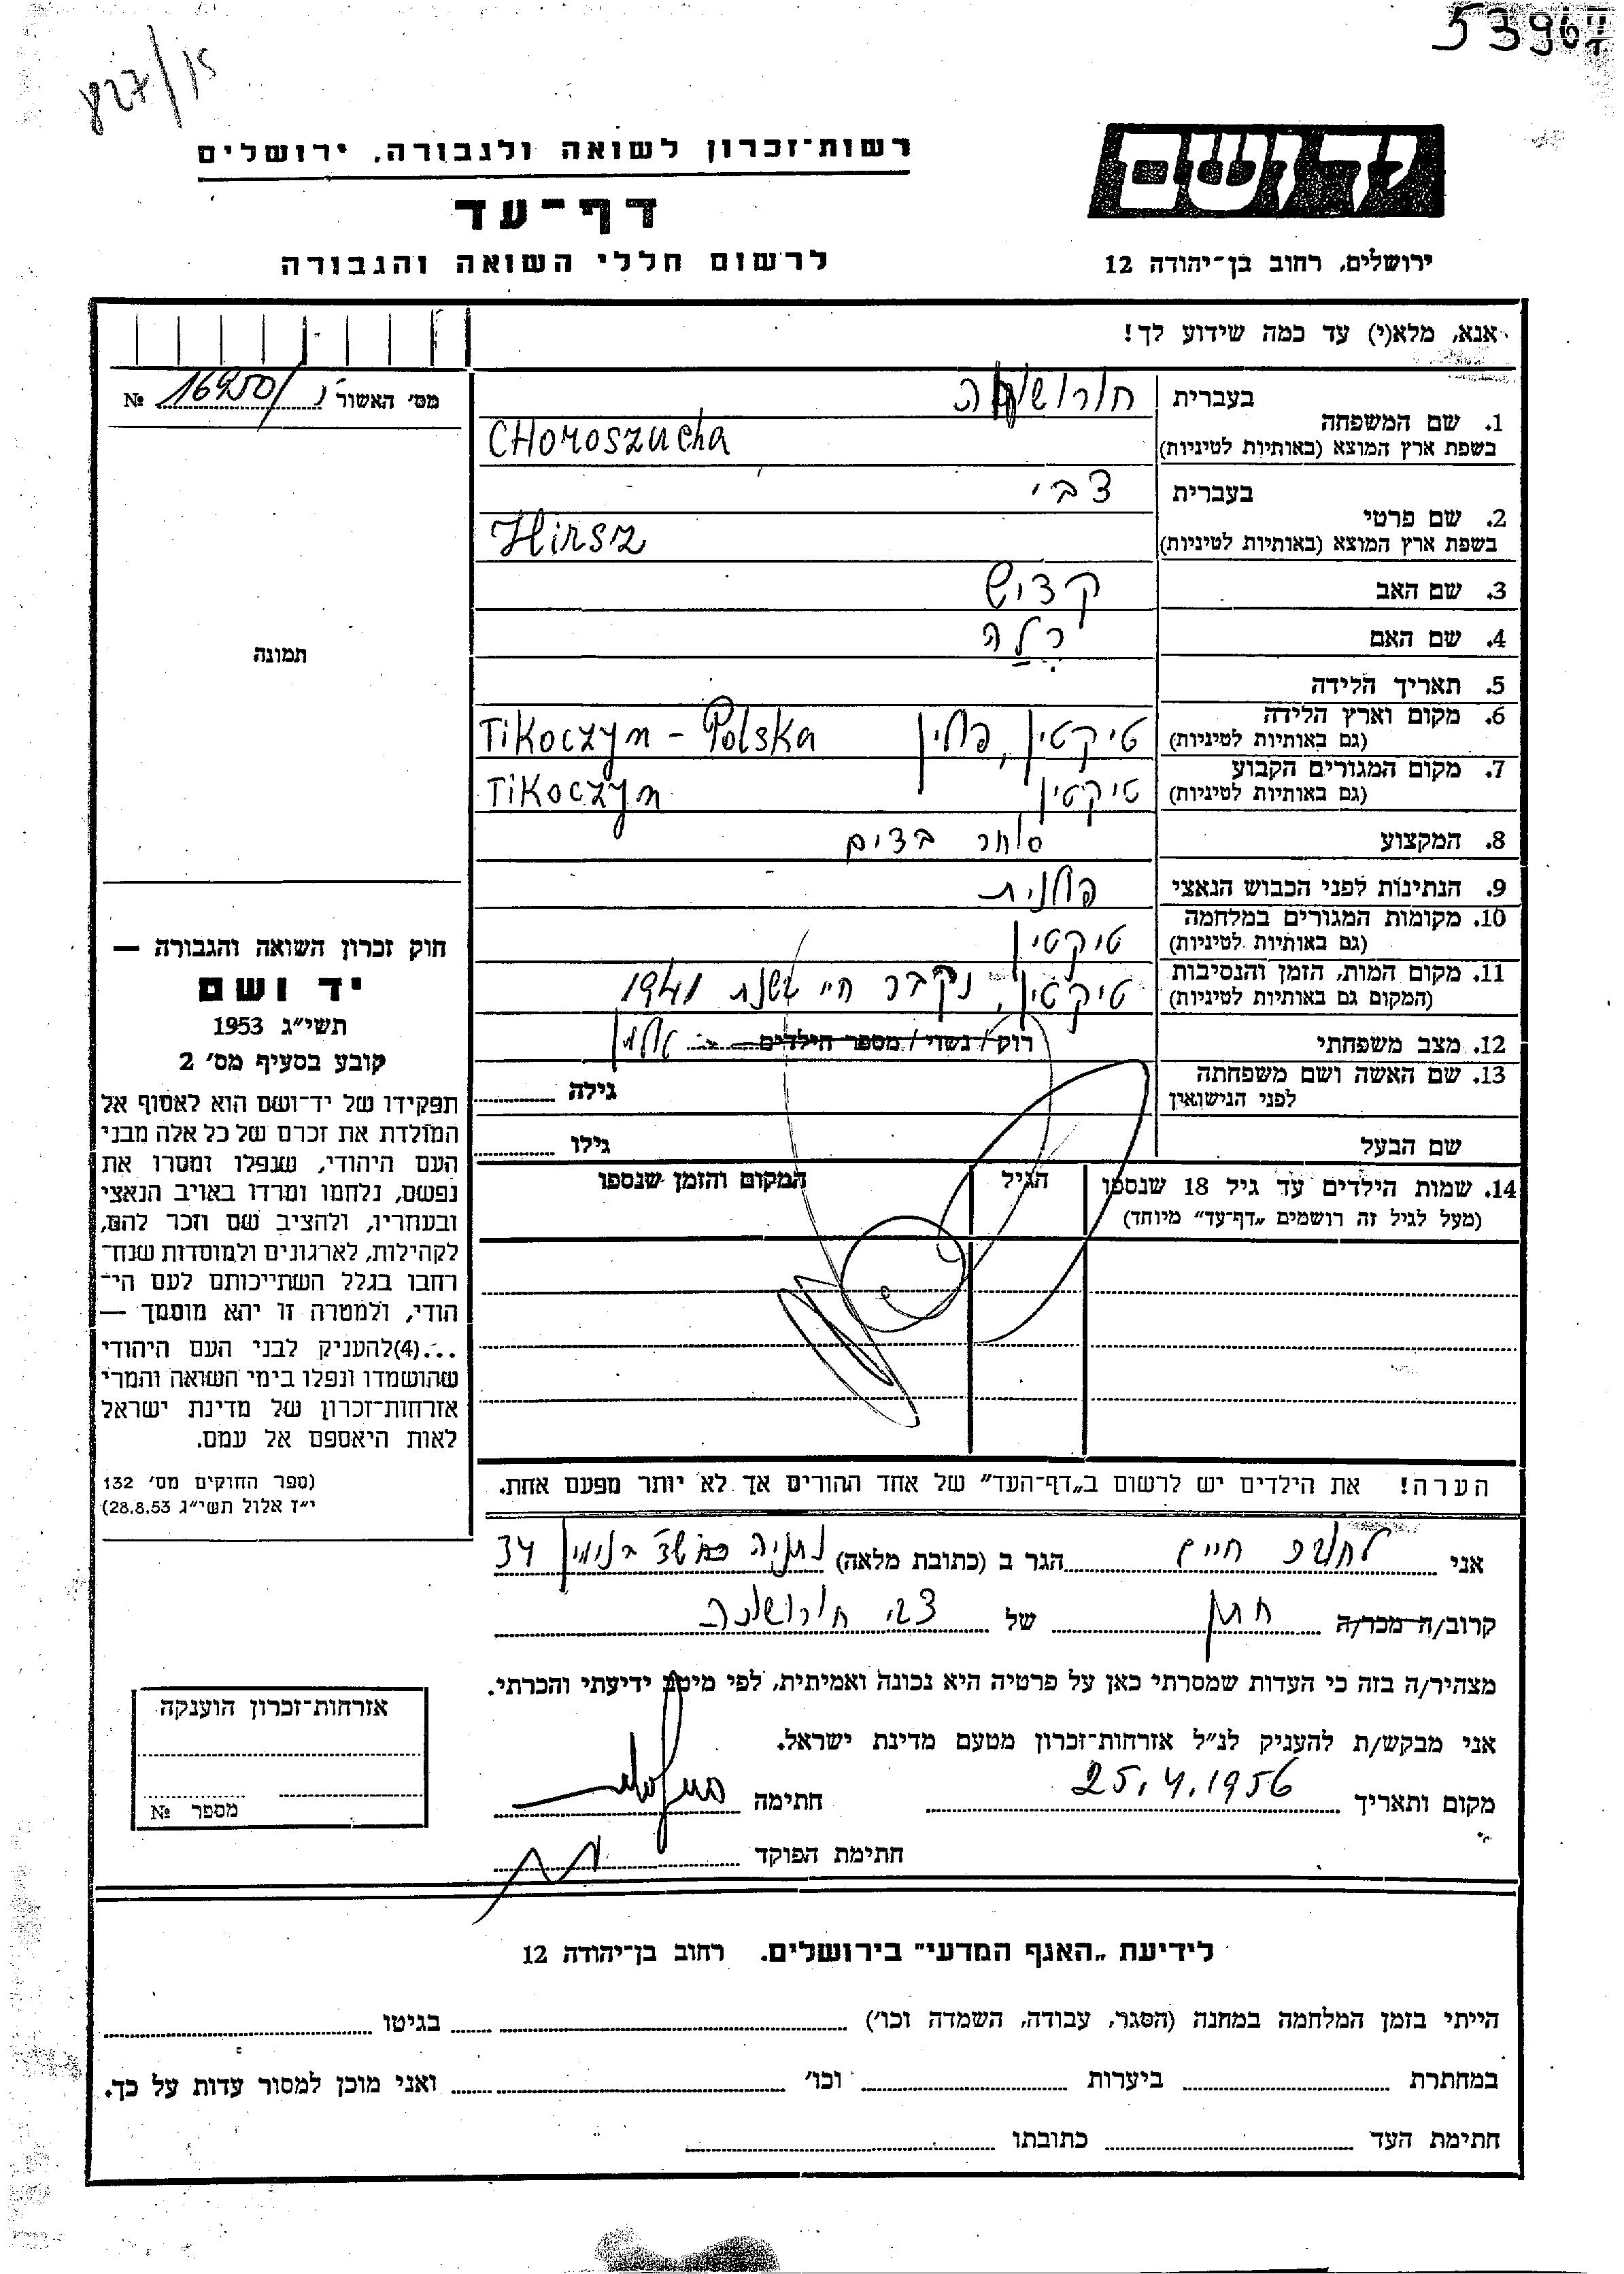 53967
827/15
ידושם
ירושלים, רחוב בן־יהודה 12
רשות־זכרון לשואה ולגבורה, ירושלים
דף־עד
לרשום חללי השואה והגבורה
אנא, מלא(י) עד כמה שידוע לך!
מס׳ האשור 16950/ №
1. שם המשפחה
בעברית
בשפת ארץ המוצא (באותיות לטיניות) CHOROSZUCHA
2. שם פרטי
בעברית צבי
בשפת ארץ המוצא (באותיות לטיניות) Hirsz
3. שם האב קדיש
4. שם האם
5. תאריך הלידה
6. מקום וארץ הלידה
(גם באותיות לטיניות) טיקטין, פולין Tikoczyn - Polska
7. מקום המגורים הקבוע
(גם באותיות לטיניות) טיקטין Tikoczyn
8. המקצוע סוחר בדים
9. הנתינות לפני הכבוש הנאצי פולנית
10. מקומות המגורים במלחמה
(גם באותיות לטיניות) טיקטין
11. מקום המות, הזמן והנסיבות
(המקום גם באותיות לטיניות) טיקטין, נקבר חיי בשנת 1941
12. מצב משפחתי רוק / נשוי / מספר הילדים אלמן
13. שם האשה ושם משפחתה
לפני הנישואין
גילה
שם הבעל
גילו
14. שמות הילדים עד גיל 18 שנספו
(מעל לגיל זה רושמים „דף־עד״ מיוחד)
הגיל
המקום והזמן שנספו
הערה! את הילדים יש לרשום ב„דף־העד״ של אחד ההורים אך לא יותר מפעם אחת.
תמונה
חוק זכרון השואה והגבורה —
יד ושם
תשי״ג 1953
קובע בסעיף מס׳ 2
תפקידו של יד־ושם הוא לאסוף אל
המולדת את זכרם של כל אלה מבני
העם היהודי, שנפלו ומסרו את
נפשם, נלחמו ומרדו באויב הנאצי
ובעוזריו, ולהציב שם וזכר להם,
לקהילות, לארגונים ולמוסדות שנח־
רחבו בגלל השתייכותם לעם הי־
הודי, ולמטרה זו יהא מוסמך —
...(4)להעניק לבני העם היהודי
שהושמדו ונפלו בימי השואה והמרי
אזרחות־זכרון של מדינת ישראל
לאות היאספם אל עמם.
(ספר החוקים מס׳ 132
י״ז אלול תשי״ג 28.8.53)
אני חיים הגר ב (כתובת מלאה) נתניה בנימין 34
קרוב/ה מכר/ה חתן של צבי
מצהיר/ה בזה כי העדות שמסרתי כאן על פרטיה היא נכונה ואמיתית, לפי מיטב ידיעתי והכרתי.
אני מבקש/ת להעניק לנ״ל אזרחות־זכרון מטעם מדינת ישראל.
מקום ותאריך 25.4.1956 חתימה
חתימת הפוקד
אזרחות־זכרון הוענקה
מספר №
לידיעת „האגף המדעי״ בירושלים. רחוב בן־יהודה 12
הייתי בזמן המלחמה במחנה (הסגר, עבודה, השמדה וכו׳) בגיטו
במחתרת ביערות וכו׳ ואני מוכן למסור עדות על כך.
חתימת העד כתובתו